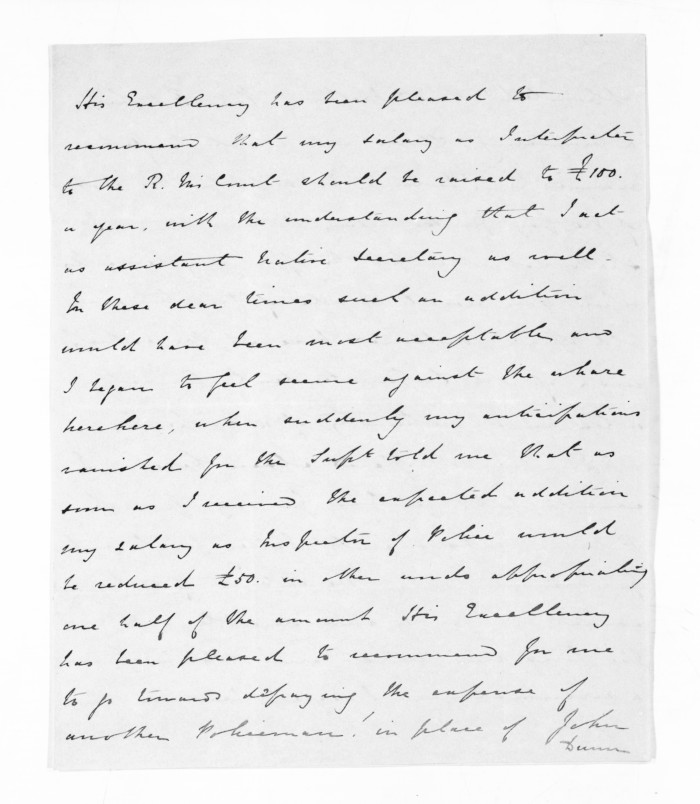 His Excellency has been pleased to
recommend that my salary as Interpreter
to the R. Ms Court should be raised to £100.
a year, with the understanding that I act
as assistant Native Secretary as well.
In these dear times such an addition
would have been most acceptable, and
I began to feel secure against the whare
herehere, when suddenly my anticipations
vanished for the Supt told me that as
soon as I received the expected addition
my salary as Inspector of Police would
be reduced £50. in other words appropriating
one half of the amount His Excellency
has been pleased to recommend for me
to go towards defraying the expense of
another Policeman! in place of John
Dunn